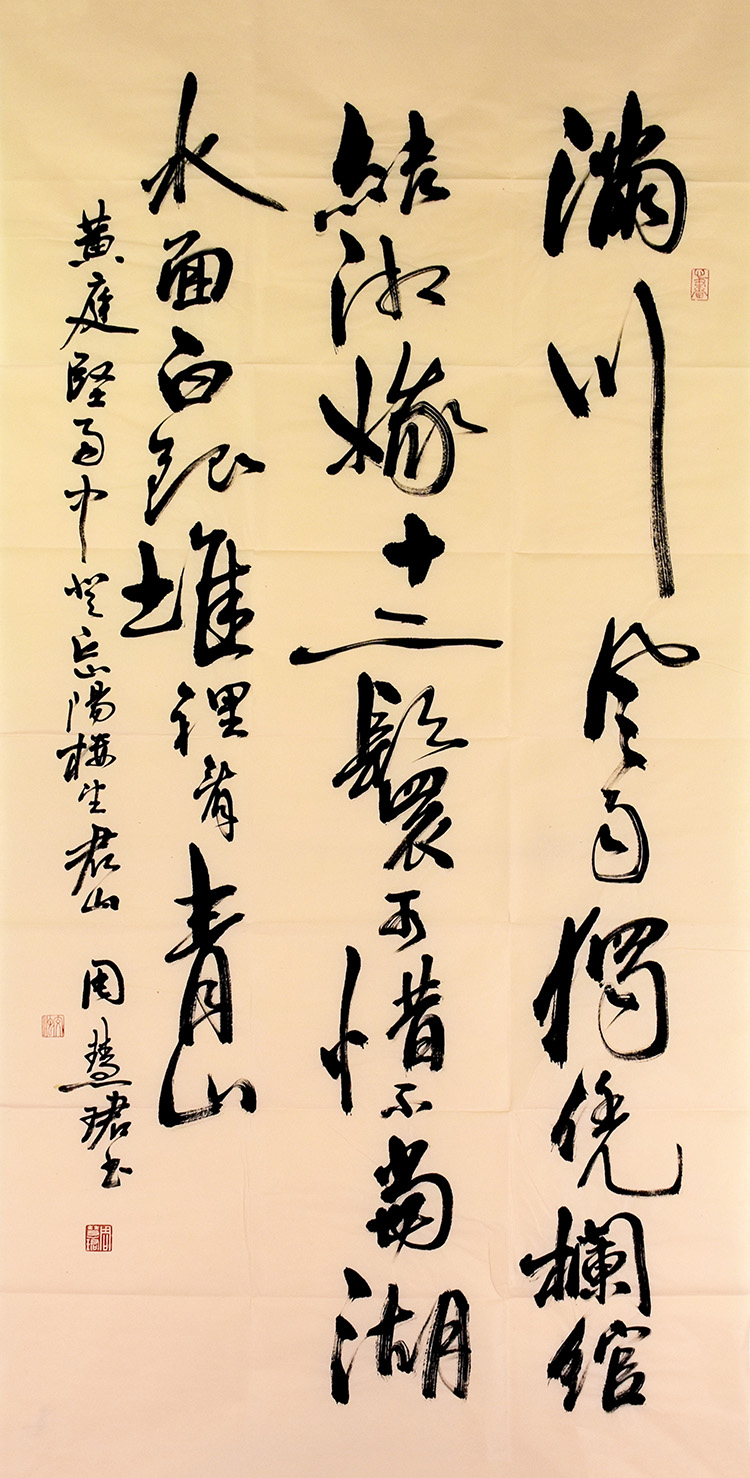 滿川風雨獨凭欄綰
結湘娥十二鬟可惜不當湖
水面白銀堆裡看青山
黃庭堅雨中登岳陽樓望君山 周慧珺書